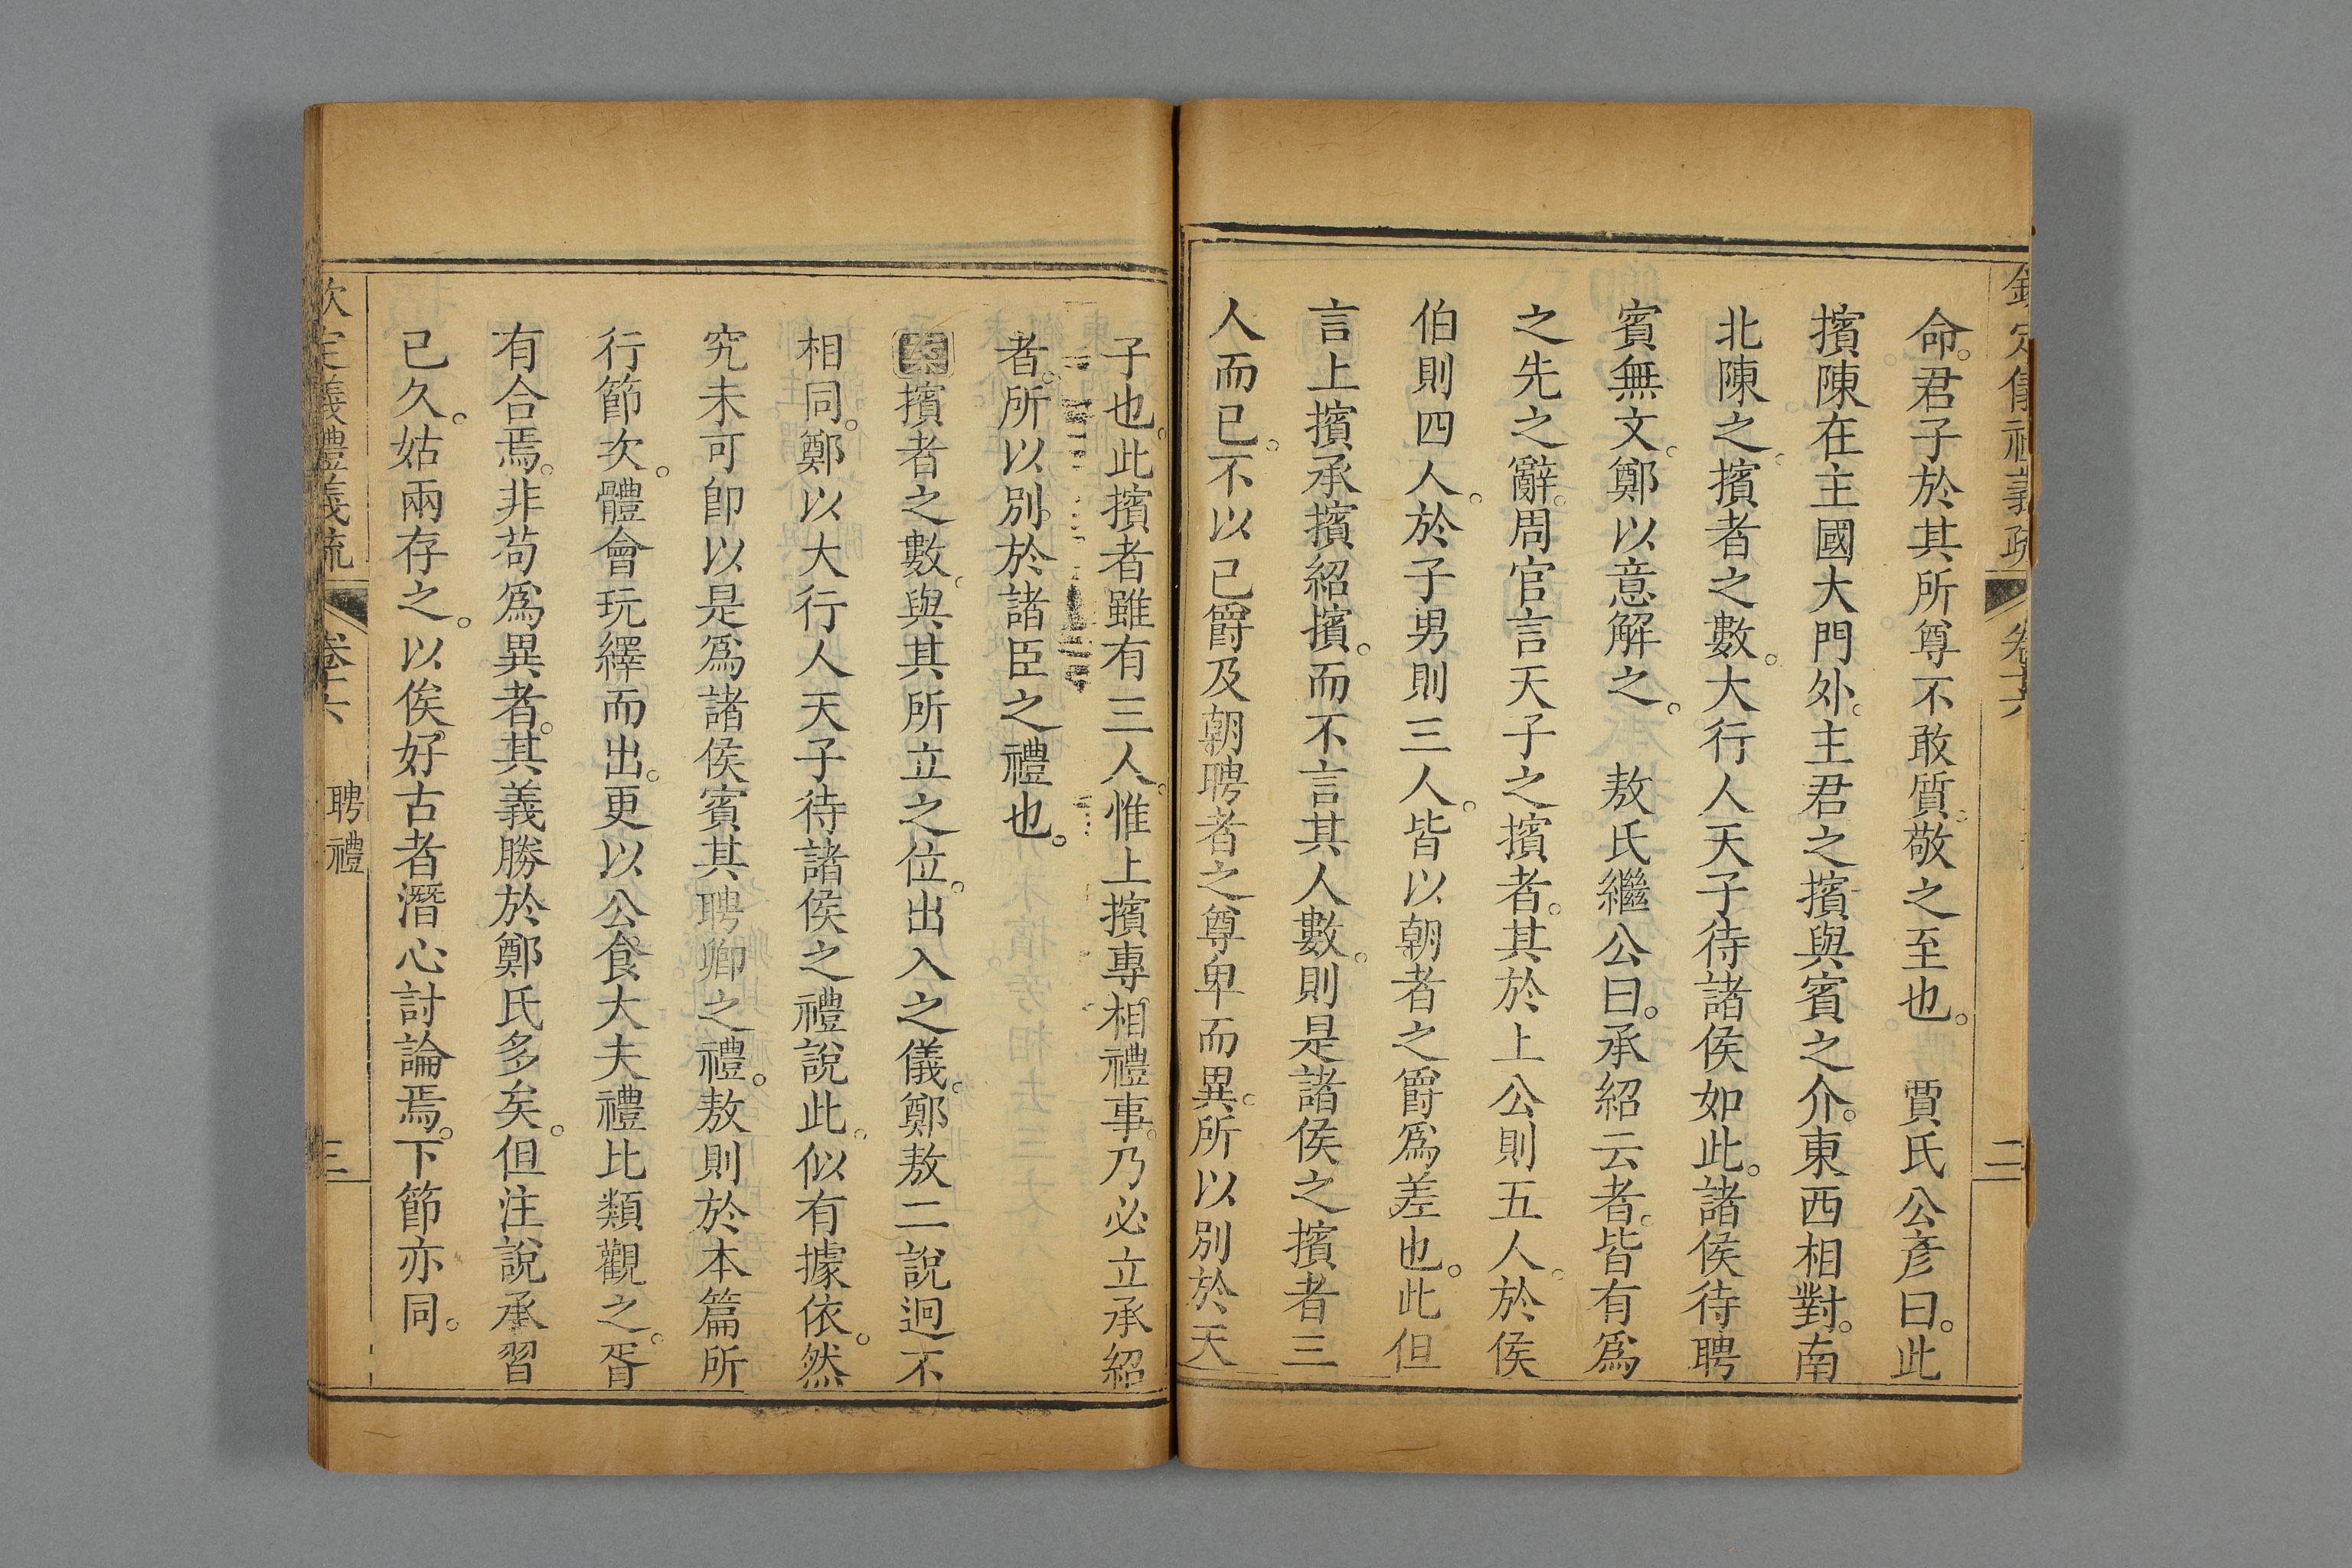 欽定儀禮義疏 卷十六 二
命。君子於其所尊不敢質。敬之至也。 賈氏公彥曰。此
擯陳在主國大門外。主君之擯與賓之介。東西相對。南
北陳之。擯者之數。大行人天子待諸侯如此。諸侯待聘
賓無文。鄭以意解之。 敖氏繼公曰。承紹云者。皆有爲
之先之辭。周官言天子之擯者。其於上公則五人。於侯
伯則四人。於子男則三人。皆以朝者之爵爲差也。此但
言上擯承擯紹擯。而不言其人數。則是諸侯之擯者三
人而已。不以已爵及朝聘者之尊卑而異。所以別於天
子也。此擯者雖有三人。惟上擯專相禮事。乃必立承紹
者。所以別於諸臣之禮也。
案擯者之數。與其所立之位。出入之儀。鄭敖二說迥不
相同。鄭以大行人天子待諸侯之禮說此。似有據依。然
究未可卽以是爲諸侯賓其聘卿之禮。敖則於本篇所
行節次。體會玩繹而出。更以公食大夫禮比類觀之。胥
有合焉。非苟爲異者。其義勝於鄭氏多矣。但注說承習
已久。姑兩存之。以俟好古者潛心討論焉。下節亦同。
欽定義禮義疏 卷十六 聘禮 三